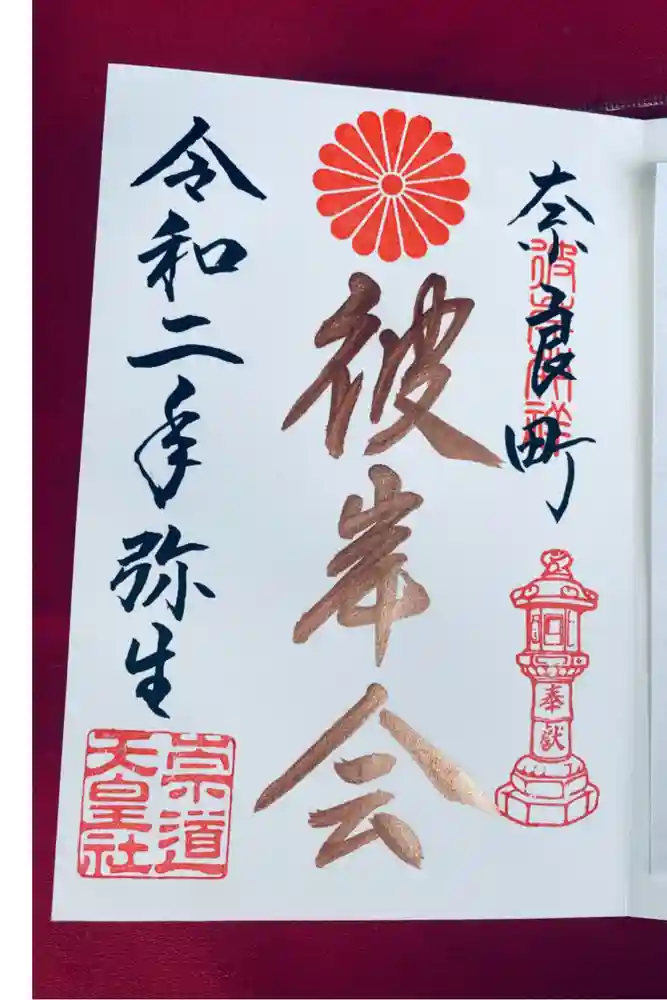 奈良町
奉献
彼岸会
令和二年弥生
崇道
天皇社